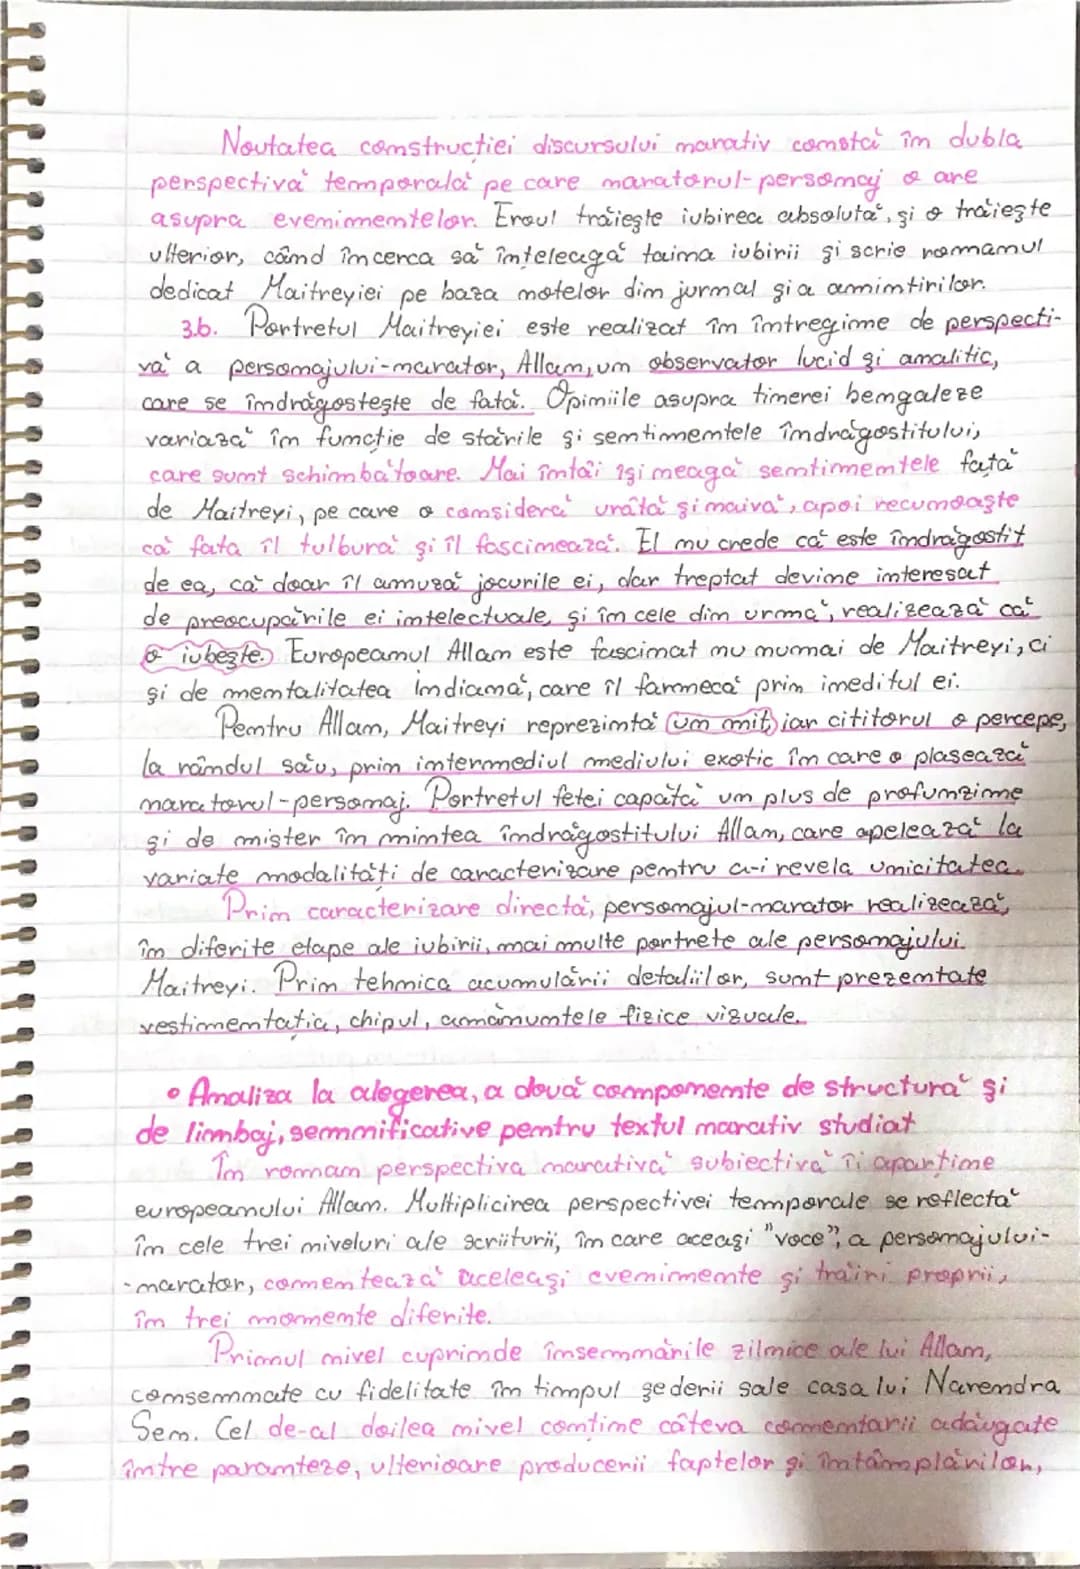 Noutatea construcției discursului narativ constă în dubla
perspectivă temporală pe care naratorul-personaj o are
asupra evenimentelor. Eroul trăiește iubirea absolută, și o trăiește
ulterior, când încerca să înțeleagă taina iubirii și scrie romanul
dedicat Maitreyiei pe baza notelor din jurnal și a amintirilor.
3.b. Portretul Maitreyiei este realizat în întregime de perspecti-
vă a personajului-narator, Allan, un observator lucid și analitic,
care se îndrăgostește de fată. Opiniile asupra tinerei bengaleze
variază în funcție de stările și sentimentele îndrăgostitului,
care sunt schimbătoare. Mai întâi își neagă sentimentele față
de Maitreyi, pe care o consideră urâtă și naivă, apoi recunoaște
că fata îl tulbură și îl fascinează. El nu crede că este îndrăgostit
de ea, că doar îl amuză jocurile ei, dar treptat devine interesat
de preocupările ei intelectuale, și în cele din urmă, realizează că
o iubește. Europeanul Allan este fascinat nu numai de Maitreyi, ci
și de mentalitatea indiană, care îl farmecă prin ineditul ei.
Pentru Allan, Maitreyi reprezintă un mit, iar cititorul o percepe,
la rândul său, prin intermediul mediului exotic în care o plasează
naratorul-personaj. Portretul fetei capătă un plus de profunzime
și de mister în mintea îndrăgostitului Allan, care apelează la
variate modalități de caracterizare pentru a-i revela unicitatea.
Prin caracterizare directă, personajul-narator realizează,
în diferite etape ale iubirii, mai multe portrete ale personajului
Maitreyi. Prin tehnica acumulării detaliilor, sunt prezentate
vestimentația, chipul, amănuntele fizice vizuale.
• Analiza la alegerea, a două componente de structură și
de limbaj, semnificative pentru textul narativ studiat
În roman perspectiva narativă subiectivă îi aparține
europeanului Allan. Multiplicirea perspectivei temporale se reflectă
în cele trei niveluri ale scriiturii, în care aceași "voce", a personajului-
-narator, comentează aceleași evenimente și trăiri proprii,
în trei momente diferite.
Primul nivel cuprinde însemnările zilnice ale lui Allan,
consemnate cu fidelitate în timpul șederii sale casa lui Narendra
Sen. Cel de-al doilea nivel conține câteva comentarii adăugate
între paranteze, ulterioare producerii faptelor și întâmplărilor,